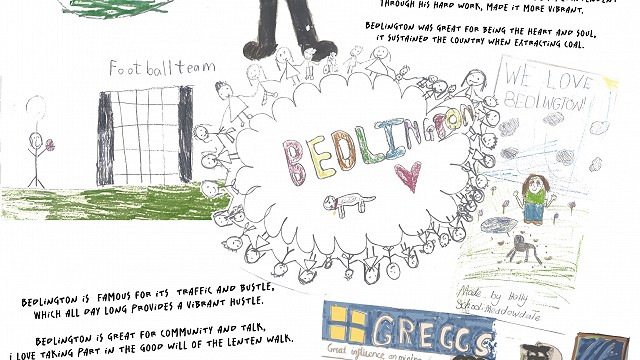 THROUGH HIS HARD WORK, MADE IT MORE VIBRANT.
BEDLINGTON WAS GREAT FOR BEING THE HEART AND SOUL,
IT SUSTAINED THE COUNTRY WHEN EXTRACTING COAL.
Football team
WE LOVE
BEDLINGTON!
BEDLINGTON
Made by Holly
School: Meadowdale
BEDLINGTON IS FAMOUS FOR ITS TRAFFIC AND BUSTLE,
WHICH ALL DAY LONG PROVIDES A VIBRANT HUSTLE.
BEDLINGTON IS GREAT FOR COMMUNITY AND TALK,
I LOVE TAKING PART IN THE GOOD WILL OF THE LENTEN WALK.
GREGGS
Great influence on